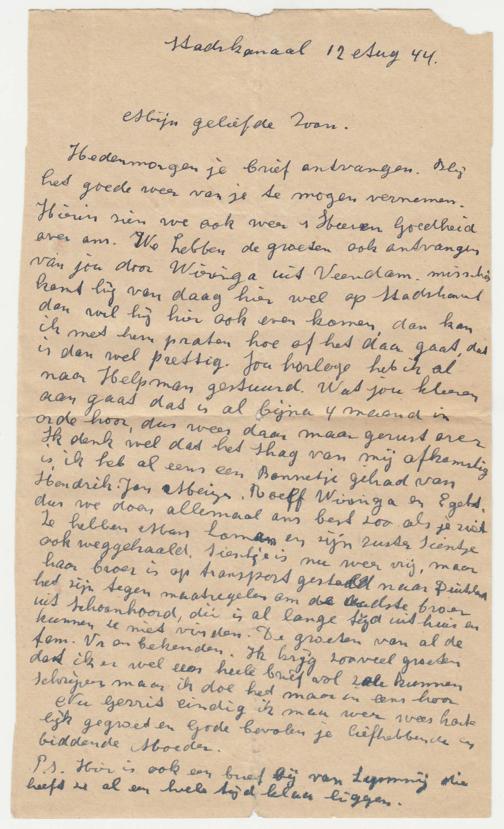 Stadskanaal 12 Aug 44.
Mijn geliefde Zoon.
Hedenmorgen je brief ontvangen. Blij
het goede weer van je te mogen vernemen.
Hierin zien we ook weer s Heeren Goedheid
over ons. We hebben de groeten ook ontvangen
van jou door Wiringa uit Veendam. misschien
komt hij van daag hier wel op Stadskanaal
dan wil hij hier ook even komen, dan kan
ik met hem praten hoe of het daar gaat, dat
is dan wel prettig. Jou horloge heb ik al
naar Helpman gestuurd. Wat jou kleren
aan gaat dat is al bijna 4 maand in
orde hoor, dus wees daar maar gerust over
Ik denk wel dat het Shag van mij afkomstig
is, ik heb al eens een Bonnetje gehad van
Hendrik-Jan Roelf Wiringa en
dus we doen allemaal ons best zoo als je ziet
Ze hebben en zijn zuster Sientje
ook weggehaald. Sientje is nu weer vrij, maar
haar broer is op transport gesteld naar Duitsland
het zijn tegen maatregelen om de oudste broer
uit Schoonhoord, die is al lange tijd uit huis en
kunnen ze niet vinden. De groeten van al de
fam. Vr en bekenden. Ik krijg zooveel groeten
dat ik er wel een heele brief vol zou kunnen
schrijven maar ik doe het maar in eens hoor
Nu Gerrit eindig ik maar weer wees harte
lijk gegroet en Gode bevolen je liefhebbende en
biddende Moeder.
P.s. Hier is ook een brief bij van die
heeft ze al een heele tijd klaar liggen.